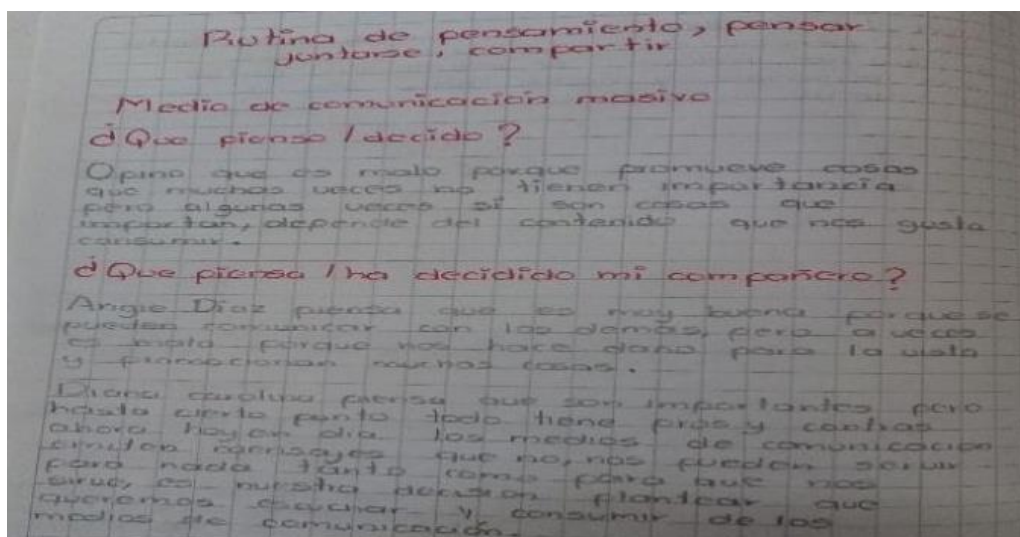 Rutina de pensamiento, pensar
juntarse, compartir
Medio de comunicación masivo
¿Que pienso / decido?
Opino que es malo porque promueve cosas
que muchas veces no tienen importancia
pero algunas veces si son cosas que
importan, depende del contenido que nos gusta
consumir.
¿Que piensa / ha decidido mi compañero?
Angie Diaz piensa que es muy buena porque se
pueden comunicar con los demas, pero a veces
es malo porque nos hace daño para la vista
y promocionan muchas cosas.
Diana carolina piensa que son importantes pero
hasta cierto punto todo tiene pros y contras
ahora hoy en dia los medios de comunicacion
emiten mensajes que no, nos pueden servir
para nada tanto como para que nos
sirva, es nuestra decision plantear que
queremos escuchar y consumir de los
medios de comunicación.